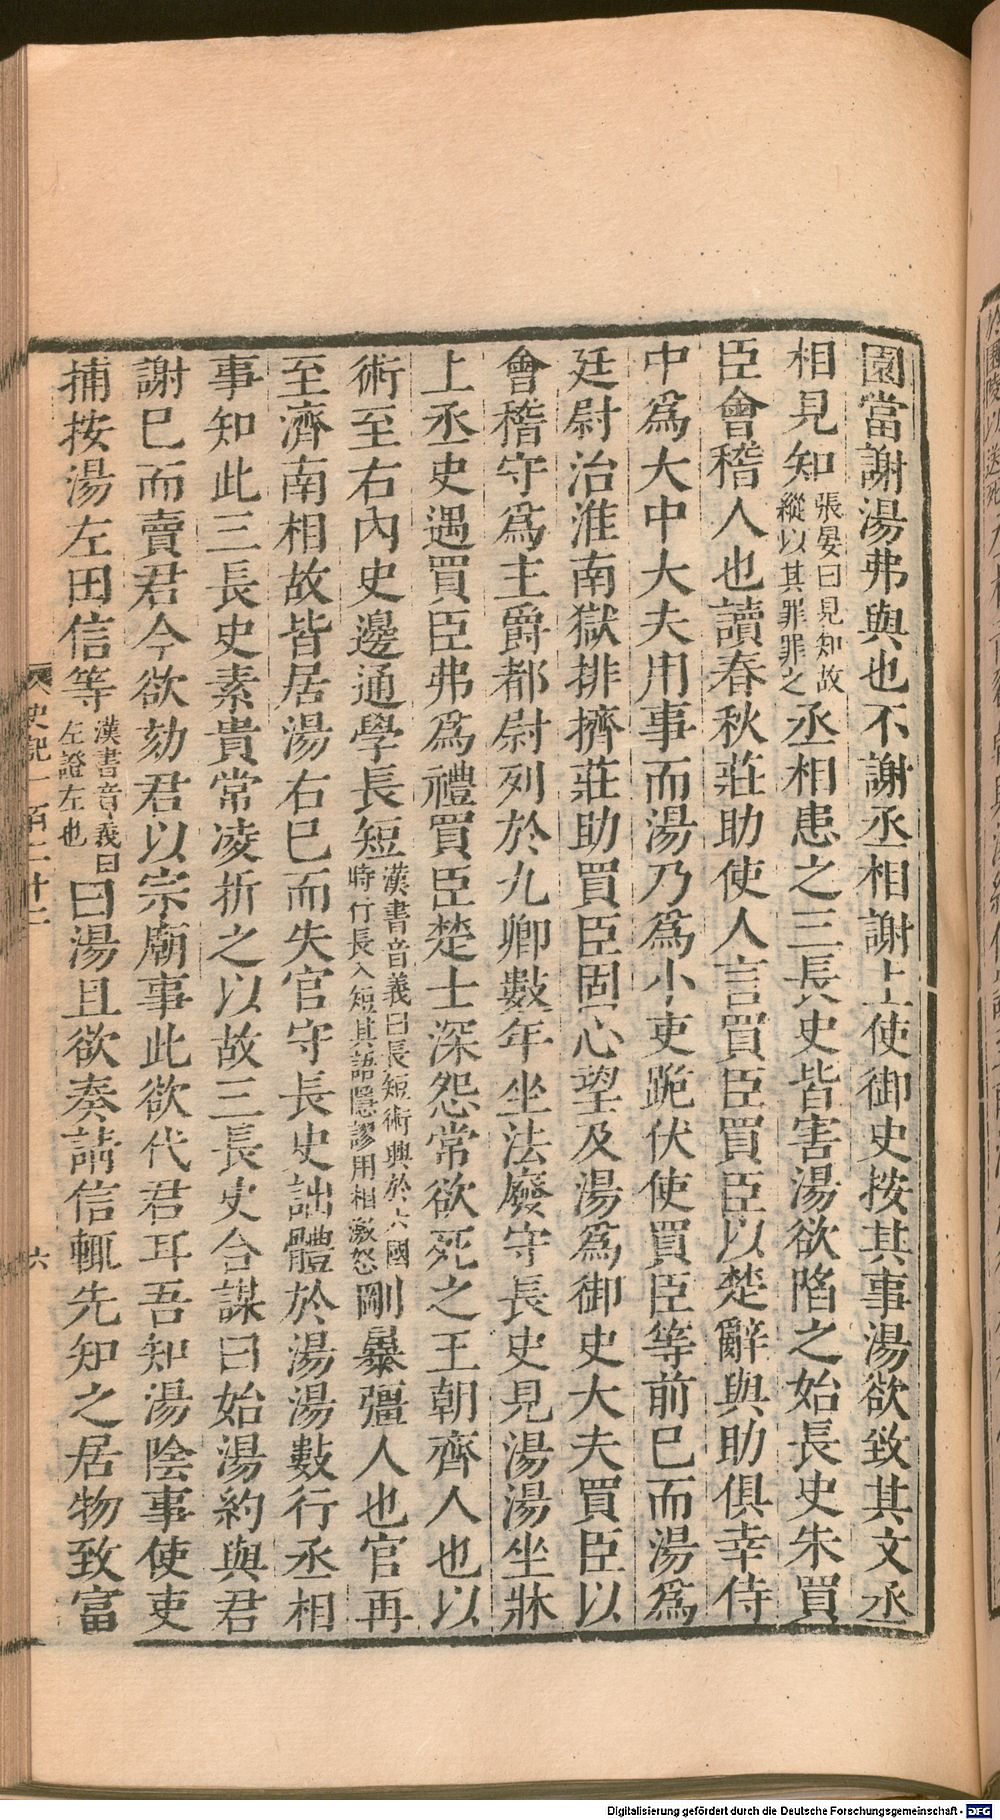 園當謝湯弗與也不謝丞相謝上使御史按其事湯欲致其文丞
相見知張晏曰見知故縱以其罪罪之丞相患之三長史皆害湯欲陷之始長史朱買
臣會稽人也讀春秋莊助使人言買臣買臣以楚辭與助俱幸侍
中爲大中大夫用事而湯乃爲小吏跪伏使買臣等前已而湯爲
廷尉治淮南獄排擠莊助買臣固心望及湯爲御史大夫買臣以
會稽守爲主爵都尉列於九卿數年坐法廢守長史見湯湯坐牀
上丞史遇買臣弗爲禮買臣楚士深怨常欲死之王朝齊人也以
術至右內史邊通學長短漢書音義曰長短術興於六國時行長入短其語隱謬用相激怒剛暴彊人也官再
至濟南相故皆居湯右已而失官守長史詘體於湯湯數行丞相
事知此三長史素貴常凌折之以故三長史合謀曰始湯約與君
謝已而賣君今欲劾君以宗廟事此欲代君耳吾知湯陰事使吏
捕按湯左田信等漢書音義曰左證左也曰湯且欲奏請信輒先知之居物致富
史記一百二十二
六
Digitalisierung gefördert durch die Deutsche Forschungsgemeinschaft - DFG